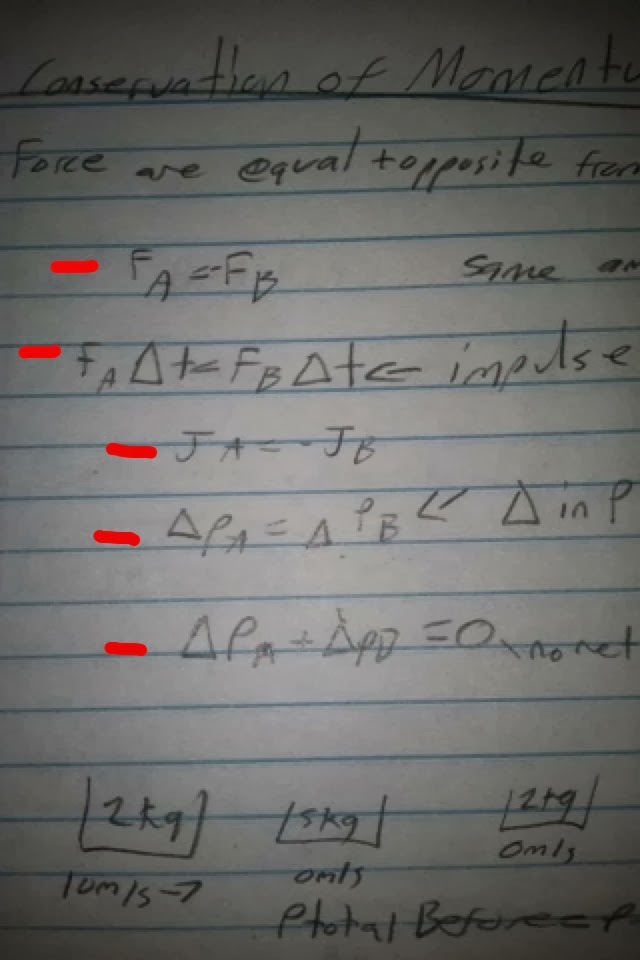 Conservation of Momentu
Force are equal + opposite from
F_A = -F_B same am
F_A Δt = F_B Δt ← impulse
J_A = -J_B
Δp_A = Δ P_B << Δ in P
ΔP_A + Δp_B = 0 \ no net
2kg 5kg 2kg
10m/s → 0m/s 0m/s
Ptotal Before = P